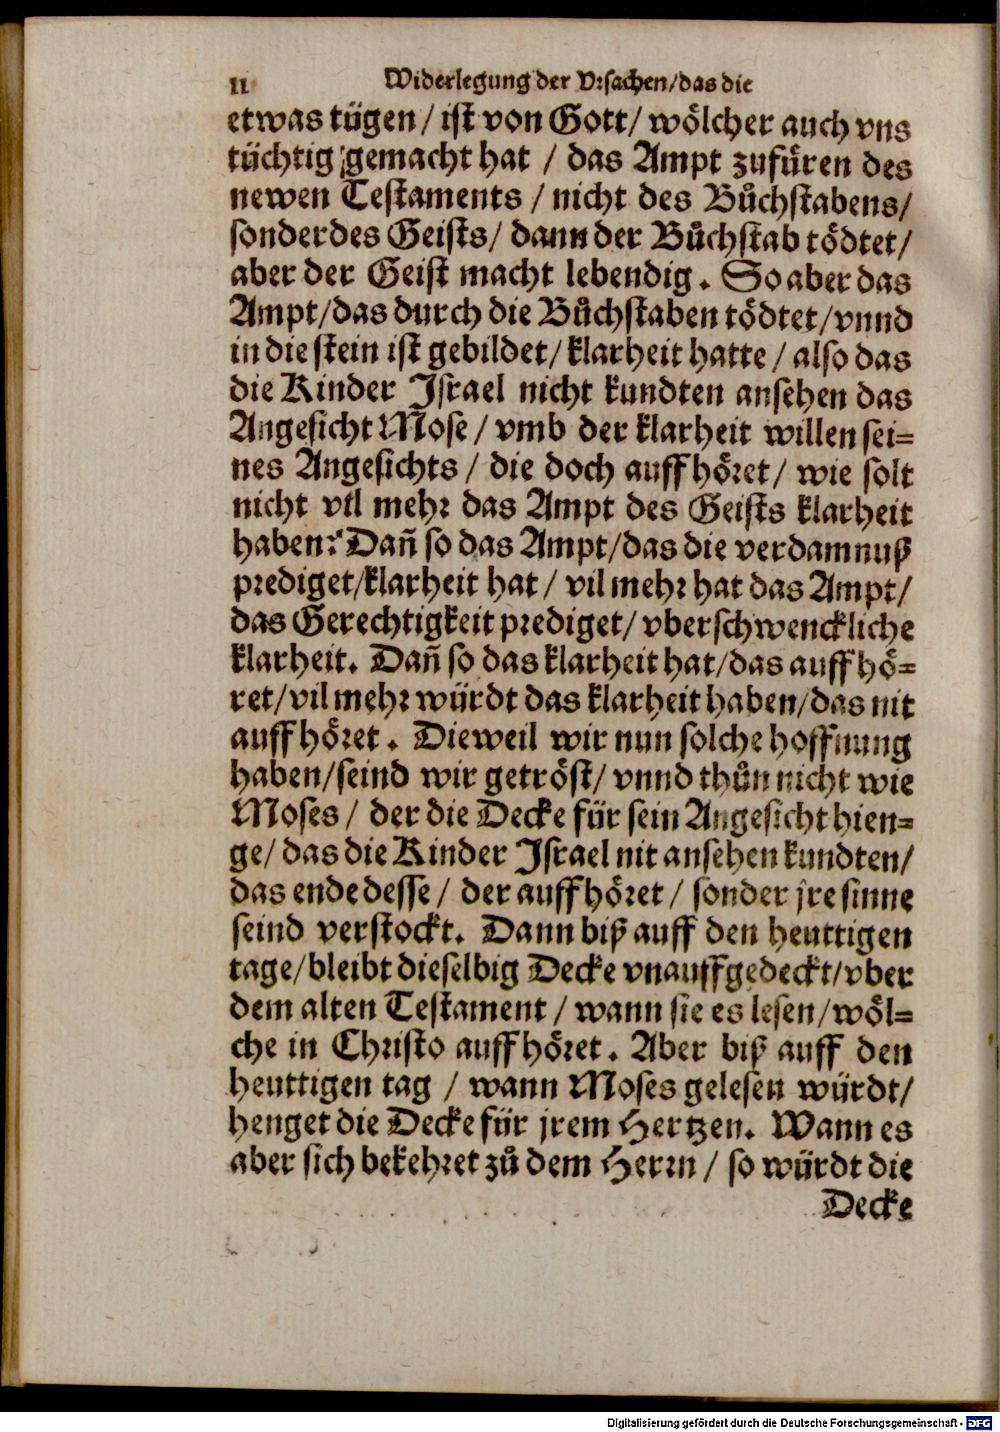 II Widerlegung der Vrsachen/das die
etwas tügen/ ist von Gott/ wölcher auch vns
tüchtig gemacht hat / das Ampt zufüren des
newen Testaments / nicht des Bůchstabens/
sonder des Geists/ dann der Bůchstab tödtet/
aber der Geist macht lebendig. So aber das
Ampt/das durch die Bůchstaben tödtet/vnnd
in die stein ist gebildet/ klarheit hatte/ also das
die Kinder Israel nicht kundten ansehen das
Angesicht Mose/ vmb der klarheit willen sei=
nes Angesichts/ die doch auffhöret/ wie solt
nicht vil mehr das Ampt des Geists klarheit
haben? Dañ so das Ampt/das die verdamnuß
prediget/klarheit hat/ vil mehr hat das Ampt/
das Gerechtigkeit prediget/ vberschwenckliche
klarheit. Dañ so das klarheit hat/das auffhö=
ret/vil mehr würdt das klarheit haben/das nit
auffhöret. Dieweil wir nun solche hoffnung
haben/seind wir getröst/ vnnd thůn nicht wie
Moses/ der die Decke für sein Angesicht hien=
ge/ das die Kinder Israel nit ansehen kundten/
das ende desse/ der auffhöret/ sonder jre sinne
seind verstockt. Dann biß auff den heuttigen
tage/bleibt dieselbig Decke vnauffgedeckt/vber
dem alten Testament/ wann sie es lesen/wöl=
che in Christo auffhöret. Aber biß auff den
heuttigen tag / wann Moses gelesen würdt/
henget die Decke für jrem Hertzen. Wann es
aber sich bekehret zů dem Herrn/ so würdt die
Decke
Digitalisierung gefördert durch die Deutsche Forschungsgemeinschaft - DFG